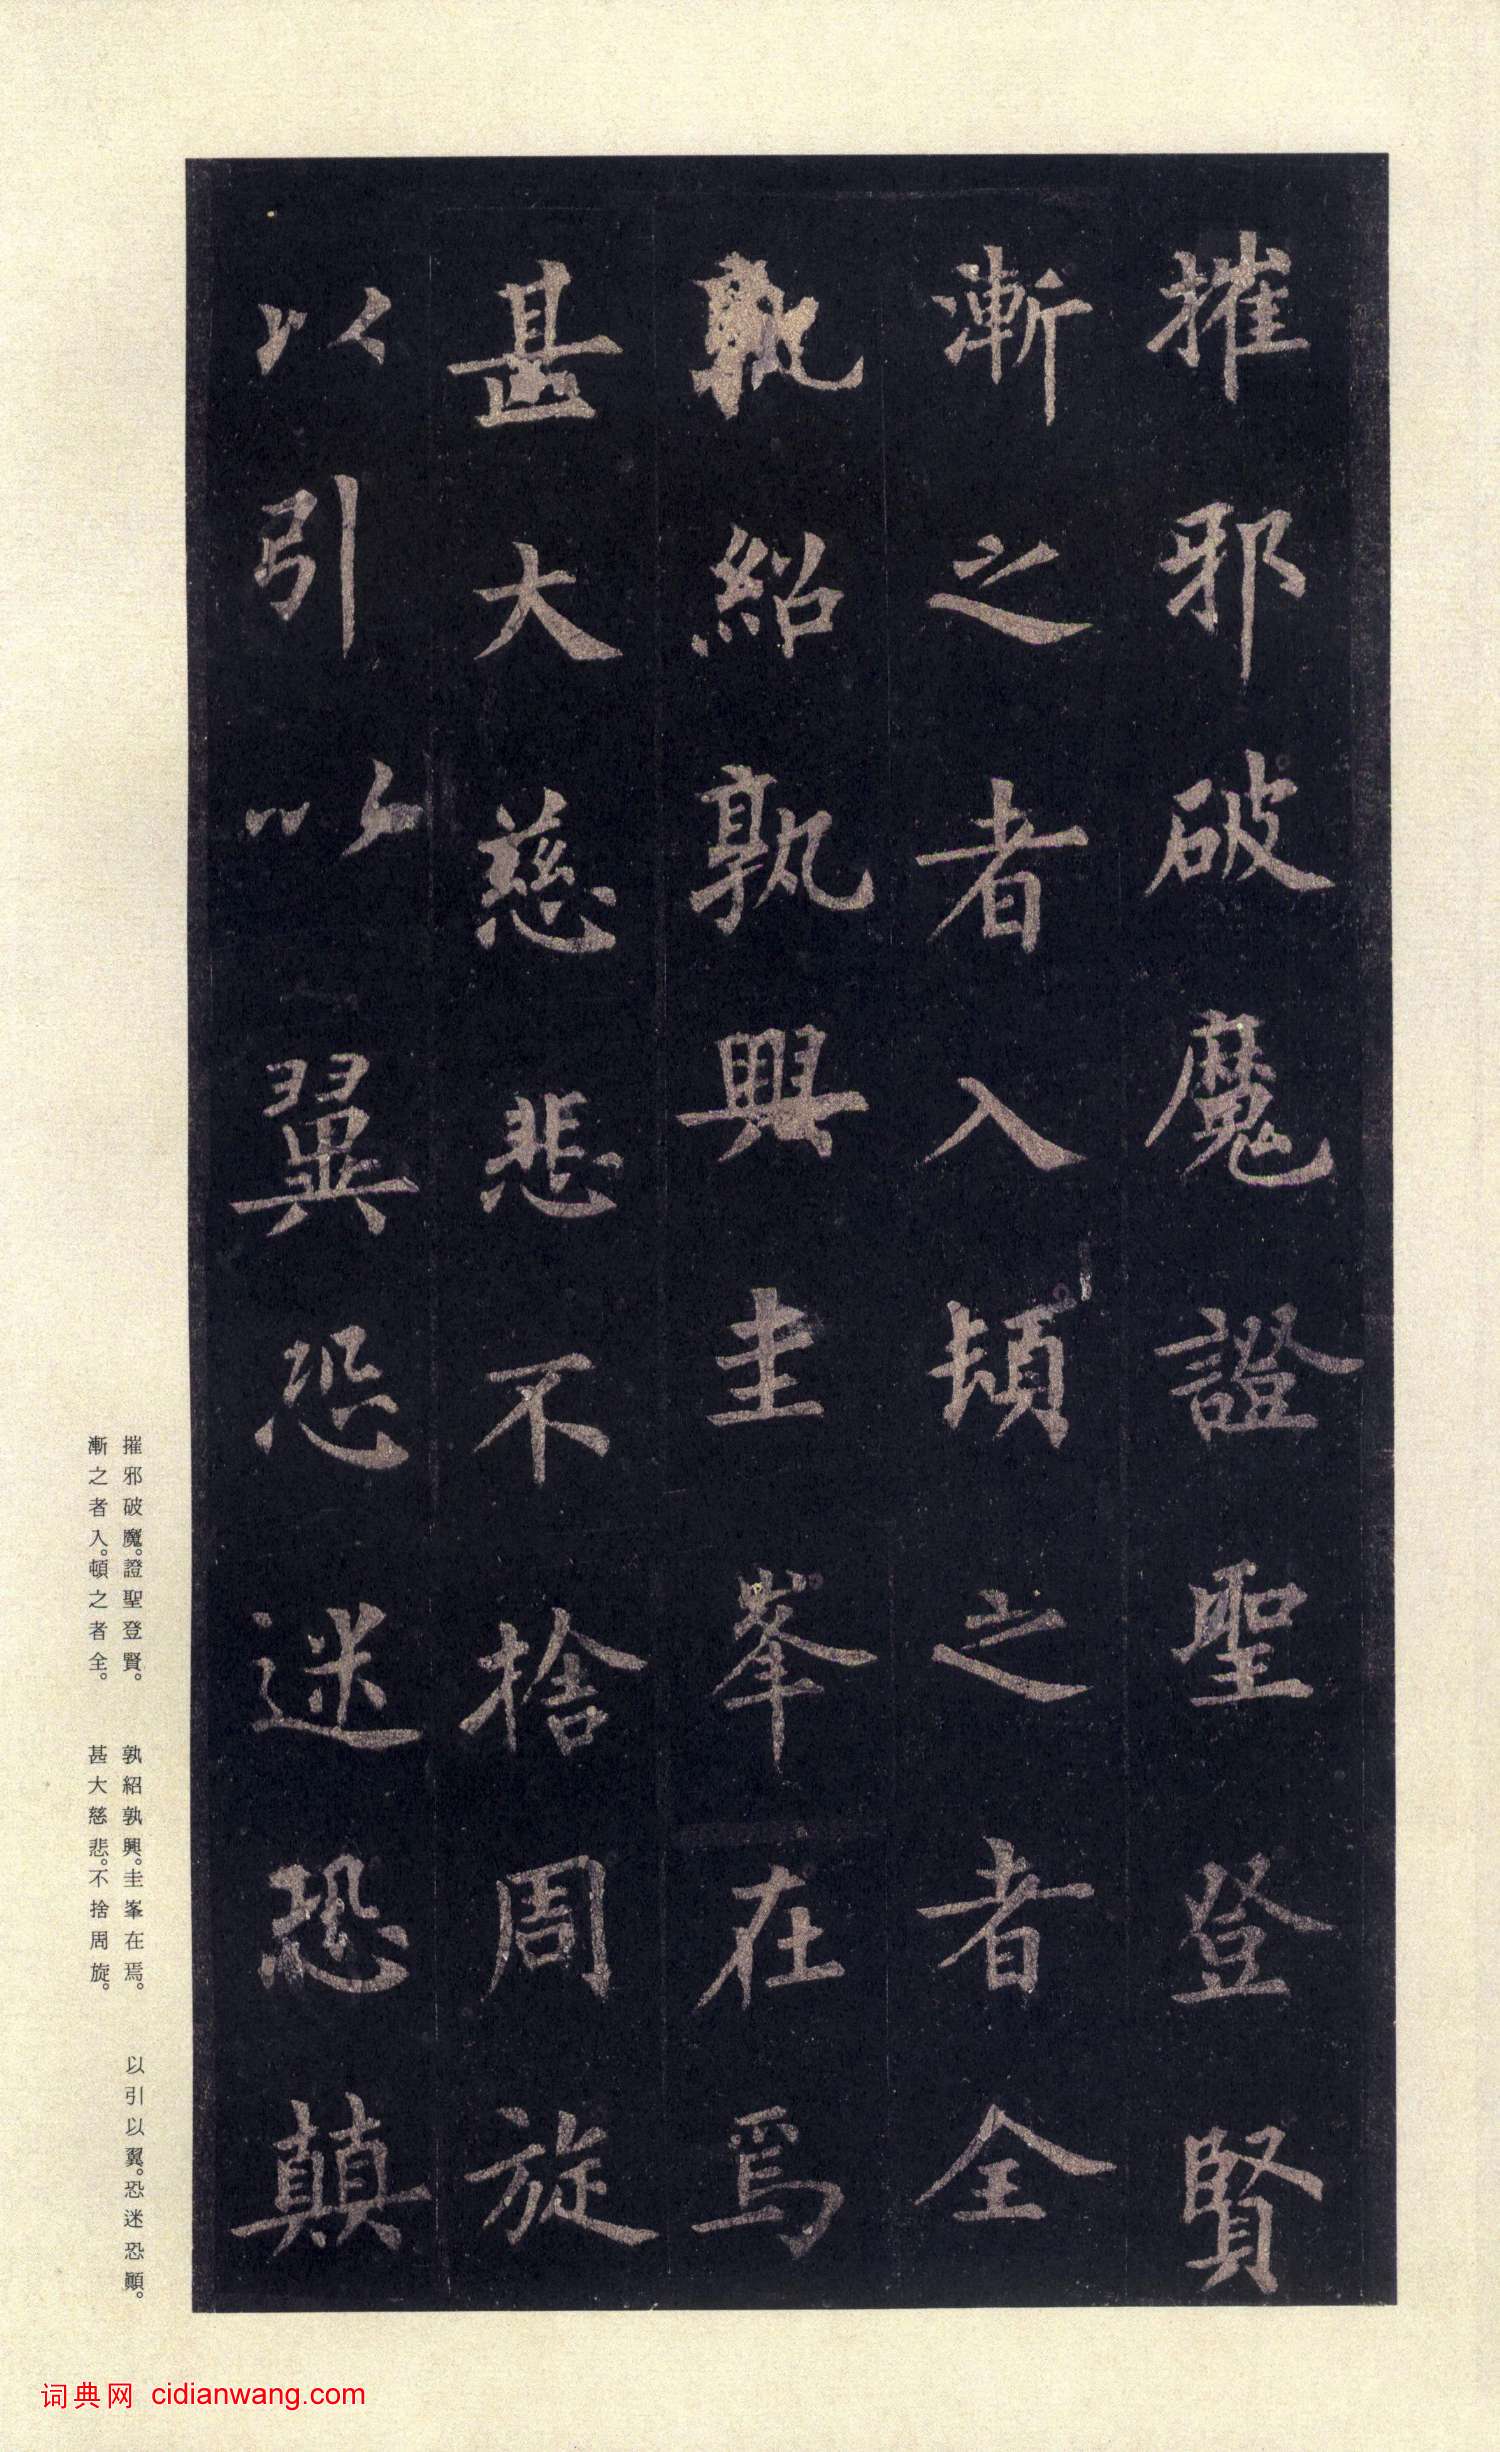 摧邪破魔證聖登賢
漸之者入頓之者全
孰紹孰興圭峯在焉
甚大慈悲不捨周旋
以引以翼恐迷恐顛
摧邪破魔。證聖登賢。
漸之者入。頓之者全。
孰紹孰興。圭峯在焉。
甚大慈悲。不捨周旋。
以引以翼。恐迷恐顚。
词典网 cidianwang.com